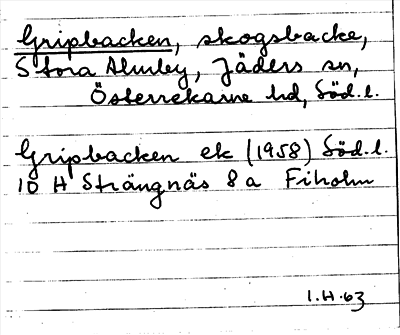 Gripbacken, skogsbacke,
Stora Almby, Jäders sn,
Österrekarne hd, Söd.l.
Gripbacken ek (1958) Söd.l.
10 H Strängnäs 8 a Fiholm
I.H.63